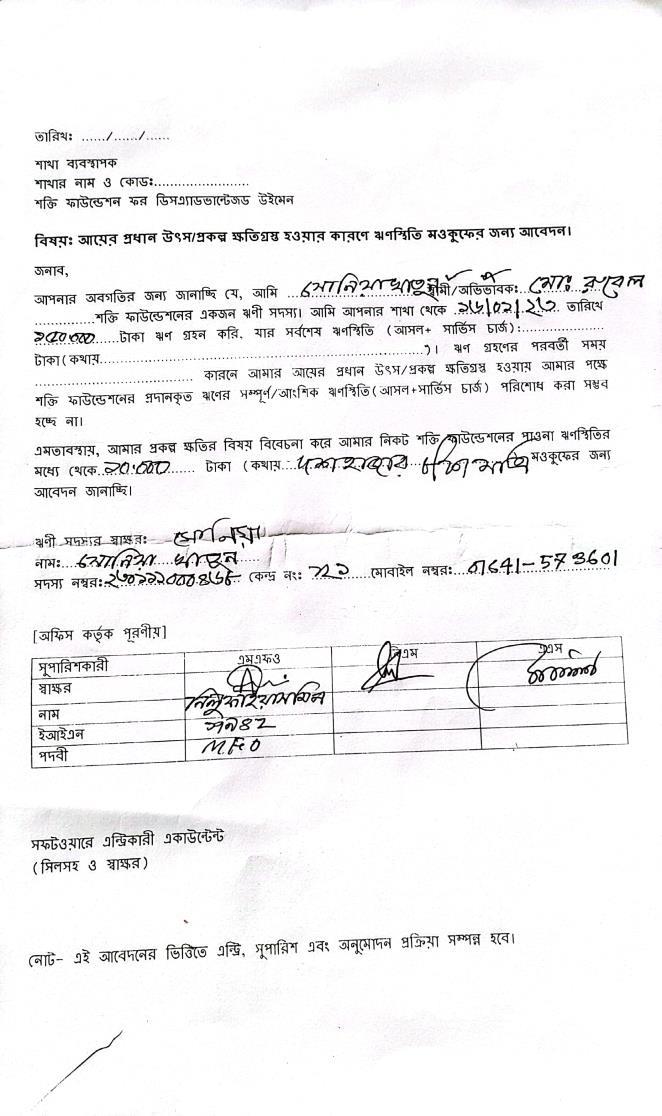 তারিখঃ ....../....../......
শাখা ব্যবস্থাপক
শাখার নাম ও কোডঃ........................
শক্তি ফাউন্ডেশন ফর ডিসএ্যাডভান্টেজড উইমেন
বিষয়: আয়ের প্রধান উৎস/প্রকল্প ক্ষতিগ্রস্ত হওয়ার কারণে ঋণস্থিতি মওকুফের জন্য আবেদন।
জনাব,
আপনার অবগতির জন্য জানাচ্ছি যে, আমি ...সোনিয়া খাতুন স্বামী/অভিভাবক: মোঃ রুবেল
...............শক্তি ফাউন্ডেশনের একজন ঋণী সদস্য। আমি আপনার শাখা থেকে তারিখে
টাকা ঋণ গ্রহন করি, যার সর্বশেষ ঋণস্থিতি (আসল+ সার্ভিস চার্জ):..................
টাকা(কথায়............................................................)। ঋণ গ্রহণের পরবর্তী সময়
.............................. কারনে আমার আয়ের প্রধান উৎস/প্রকল্প ক্ষতিগ্রস্থ হওয়ায় আমার পক্ষে
শক্তি ফাউন্ডেশনের প্রদানকৃত ঋণের সম্পূর্ণ/আংশিক ঋণস্থিতি(আসল+সার্ভিস চার্জ) পরিশোধ করা সম্ভব
হচ্ছে না।
এমতাবস্থায়, আমার প্রকল্প ক্ষতির বিষয় বিবেচনা করে আমার নিকট শক্তি ফাউন্ডেশনের পাওনা ঋণস্থিতির
মধ্যে থেকে ..১০.০০০...... টাকা (কথায়...দশ হাজার টাকা মাত্র মওকুফের জন্য
আবেদন জানাচ্ছি।
ঋণী সদস্যর স্বাক্ষর: সোনিয়া
নাম:...সোনিয়া খাতুন.....
সদস্য নম্বর: কেন্দ্র নং: মোবাইল নম্বর:...01641-573601
[অফিস কর্তৃক পূরণীয়]
সুপারিশকারী এমএফও বিএম এএস
স্বাক্ষর
নাম
ইআইএন
পদবী MFO
সফটওয়ারে এন্ট্রিকারী একাউন্টেন্ট
(সিলসহ ও স্বাক্ষর)
নোট- এই আবেদনের ভিত্তিতে এন্ট্রি, সুপারিশ এবং অনুমোদন প্রক্রিয়া সম্পন্ন হবে।